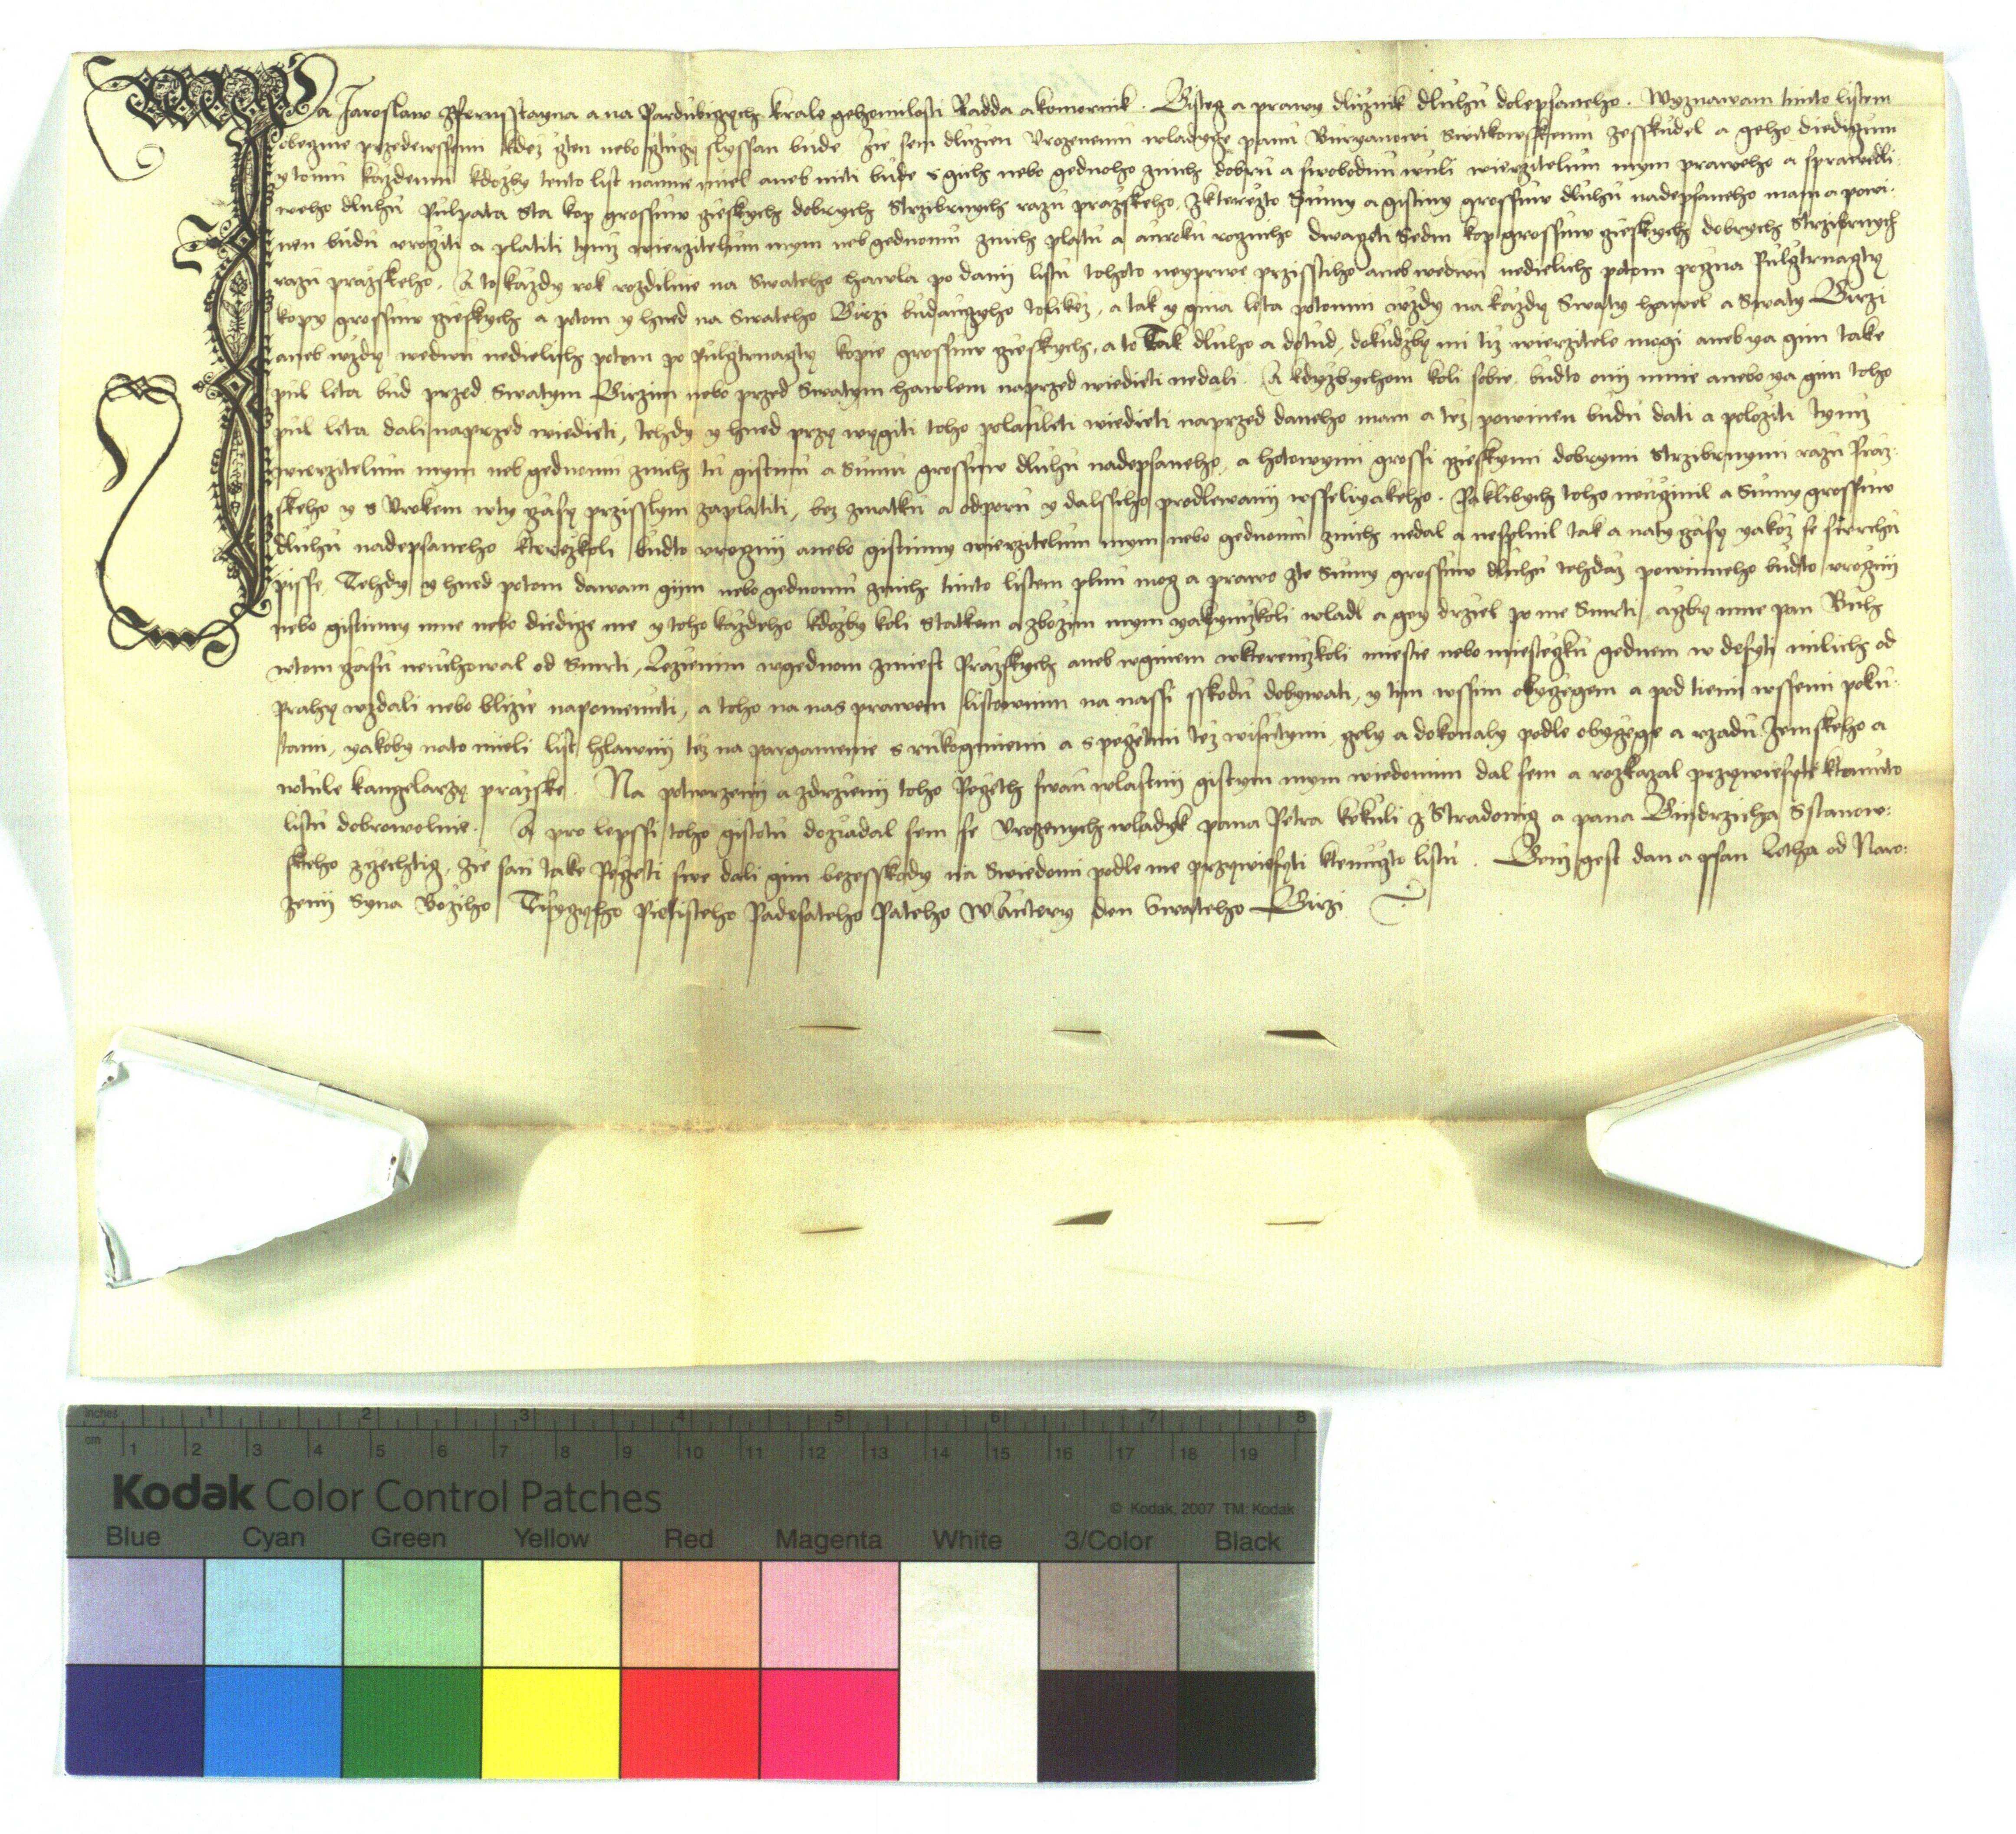 Ja Jaroslaw zPernsstayna a na Pardubiczych krale gehomilosti Radda a komornik. Gisteg a prawy dluznik dluhu dolepsaneho. Wyznawam timto listem
obeczmie przedewssemi kdez czten nebo cztucze slyssan bude Zie sem dluzien Urozenemu wladycze panu Buryanowi Switkowskemu zesskudel a geho diediczuom
y tomu kazdemu kdozby tento list namne miel aneb miti bude s gich nebo gednoho znich dobru a swobodnu wuli wierzitelum mym praweho a sprawedli-
weho dluhu Pulpata Sta kop grossuow czieskych dobrych Strzibrnych razu prazskeho, Zkterezto Sumy a gistiny grossuow dluhu nadepsaneho mam a powi-
nen budu urocziti a platiti tymz wierzitelum mym neb gednomu znich platu a auroku rocznieho dwaczeti Sedm kop grossuow czieskych dobrych Strzibrnych
razu prazskeho. A to kazdy rok rozdilnie na Swateho hawla po danij listu tohoto neyprwe przisstiho aneb wedwu nedielich potom poczna Pulcztrnagty
kopy grossuow czieskych a potom y hned na Swateho Girzi buduczyho tolikez, a tak y gina leta potomni wzdy na kazdy Swaty hawel a Swaty Girzi
aneb wzdy wedwu nedielich potom po Pulcztrnagty kopie grossuow czieskych, a to tak dluho a dotud, dokudzby mi tiz wierzitele mogi aneb ya gim take
pul leta bud przed Swatym Girzim nebo przed Swatym hawlem naprzed wiedieti nedali. A kdyzbychom koli sobie, budto onij mnie anebo ya gim toho
pul leta dali naprzed wiedieti, tehdy y hned przy wygiti toho polauleti wiedieti naprzed daneho mam a tez powinen budu dati a poloziti tymz
wierzitelum mym neb gednomu znich tu gistinu a Sumu grossuow dluhu nadepsaneho, a hotowymi grossi czieskymi dobrymi Strzibrnymi razu Praz-
skeho y s Urokem wty czasy przisslym zaplatiti, bez zmatku a odporu y dalssiho prodlewanij wsselikakeho. Paklibych toho neuczinil a Sumy grossuow
dluhu nadepsaneho kterezkoli budto urocznij anebo gistinny wierzitelum mym nebo gednomu znich nedal a nesplnil tak a naty czasy yakoz se swrchu
pisse, Tehdy y hned potom dawam gym nebo gednomu znich timto listem plnu mocz a prawo zte Sumy grossuow dluhu tehdaz powinneho budto urocznij
nebo gistinny mne nebo diedicze me y toho kazdeho kdozby koli statkem a zbozim mym yakymzkoli wladl a gey drziel po me Smrti, aczby mne pan Buh
wtom czasu neuchowal od Smrti, Lezienim wgednom zmiest Prazskych aneb wginem wkteremzkoli miestie nebo miesteczku gednem w desyti milich od
Prahy wzdali nebo blizie napomenuti, a toho na nas prawem listownim na nassi sskodu dobywati, y tim wssim obyczegem a pod tiemi wssemi poku-
tami, yakoby nato mieli list hlawnij tez na pargamenie s rukogmiemi a s peczetmi tez wisutymi, czely a dokonaly podle obyczege a rzadu Zemskeho a
wtule kanczelarzy prazske. Na potwrzenij a zdrzienij toho Peczeth swau wlastnij gistym mym wiedomim dal sem a rozkazal przywiesyti ktomuto
listu dobrowolnie. A pro lepssi toho gistotu dozadal sem se Urozenych wladyk pana Petra kekuli z Stradonicz a pana Gindrzicha Sstanow-
skeho zczechticz, zie sau take Peczeti swe dali gim bezesskody na Swiedomi podle me przywiesyti ktemuzto listu. Genz gest dan a psan Letha od Naro-
zenij Syna Boziho Tisyczyho Pietisteho Padesateho Pateho W Auterý den Swateho Girzi
inches 1 2 3 4 5 6 7 8
cm 1 2 3 4 5 6 7 8 9 10 11 12 13 14 15 16 17 18 19
Kodak Color Control Patches
© Kodak, 2007 TM: Kodak
Blue Cyan Green Yellow Red Magenta White 3/Color Black